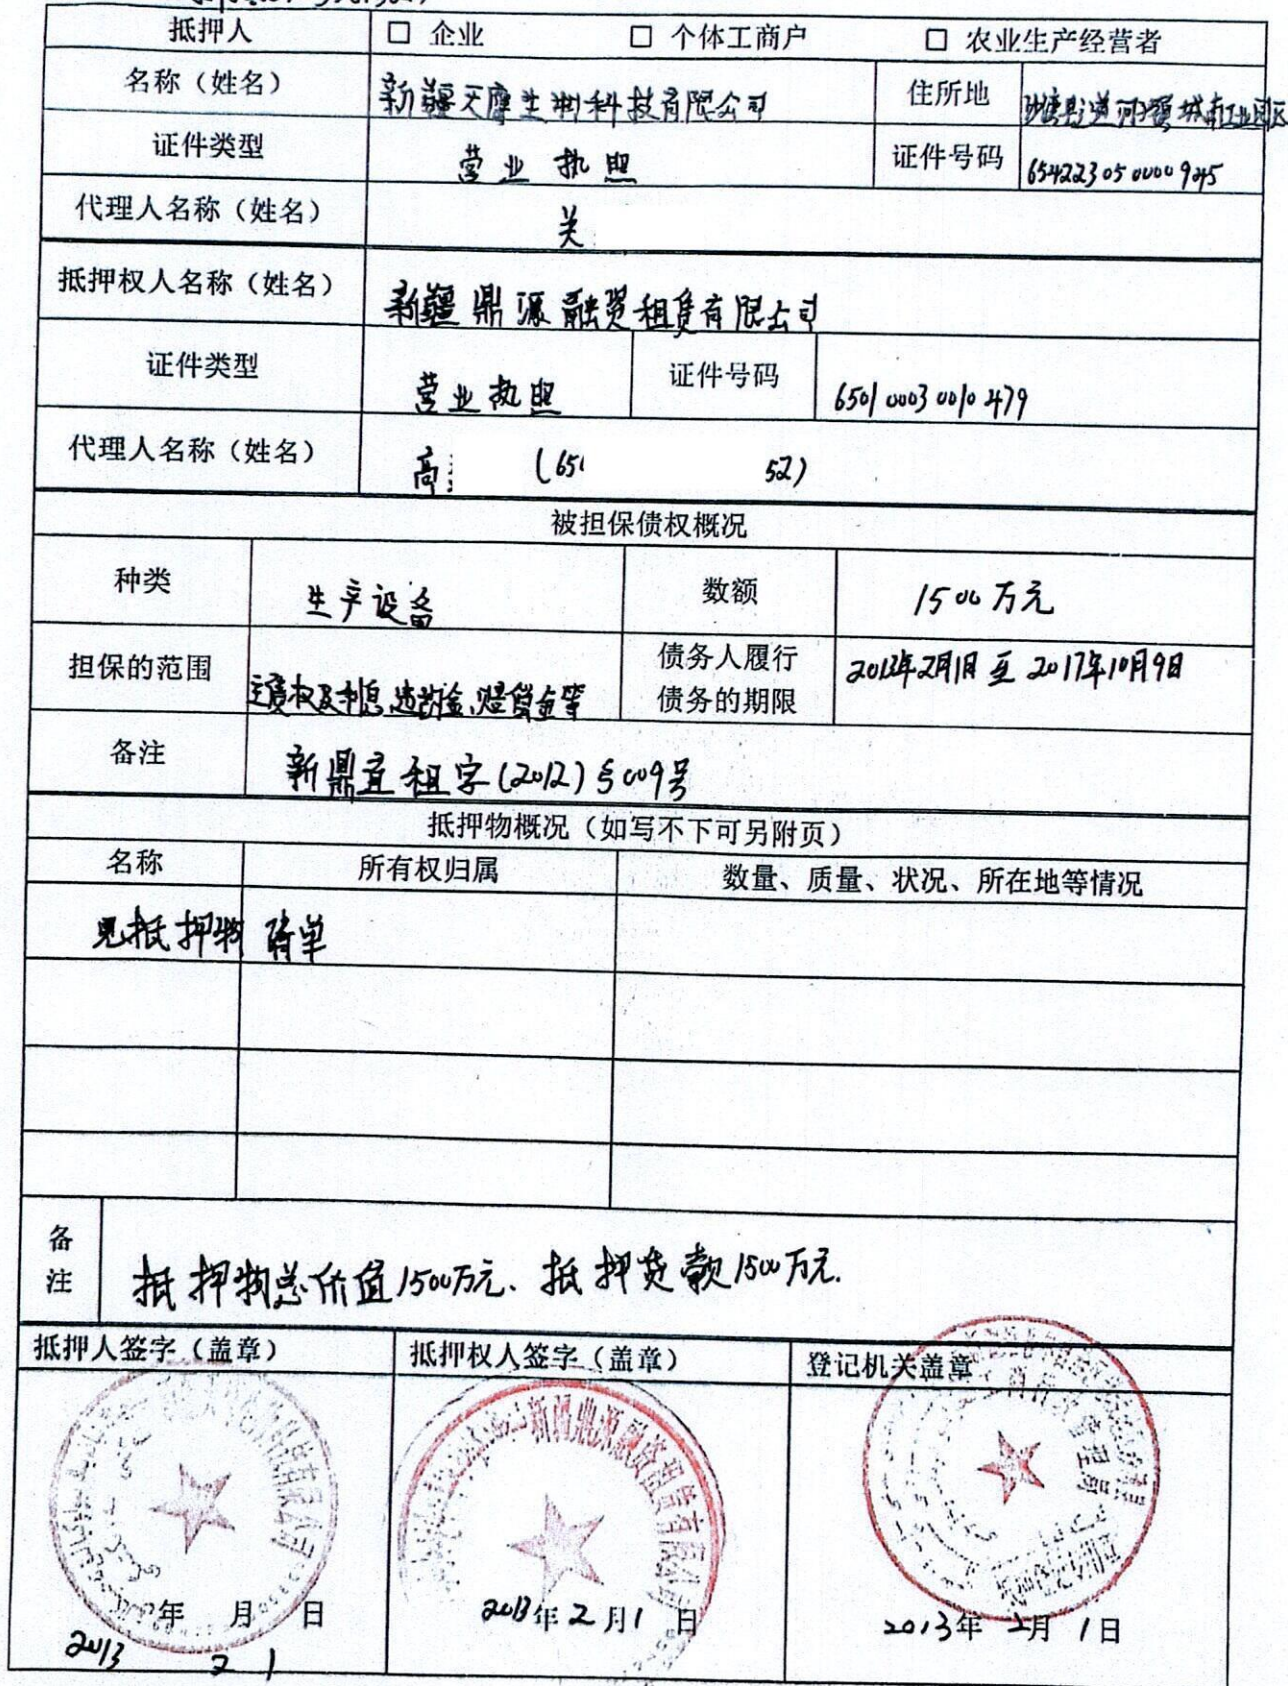 抵押人 □ 企业 □ 个体工商户 □ 农业生产经营者
名称（姓名） 新疆天摩生物科技有限公司 住所地 沙湾县 河子镇城南工业园区
证件类型 营业执照 证件号码 654223050000945
代理人名称（姓名） 关
抵押权人名称（姓名） 新疆鼎源融资租赁有限公司
证件类型 营业执照 证件号码 650100030010479
代理人名称（姓名） 高 (65 52)
被担保债权概况
种类 生产设备 数额 1500万元
担保的范围 主债权及利息、违约金、赔偿金等 债务人履行债务的期限 年2月1日至2017年10月9日
备注 新鼎直租字(2012)第009号
抵押物概况（如写不下可另附页）
名称 所有权归属 数量、质量、状况、所在地等情况
见抵押物清单
备注 抵押物总价值1500万元、抵押贷款1500万元.
抵押人签字（盖章） 抵押权人签字（盖章） 登记机关盖章
2013年2月1日 2013年2月1日 2013年2月1日